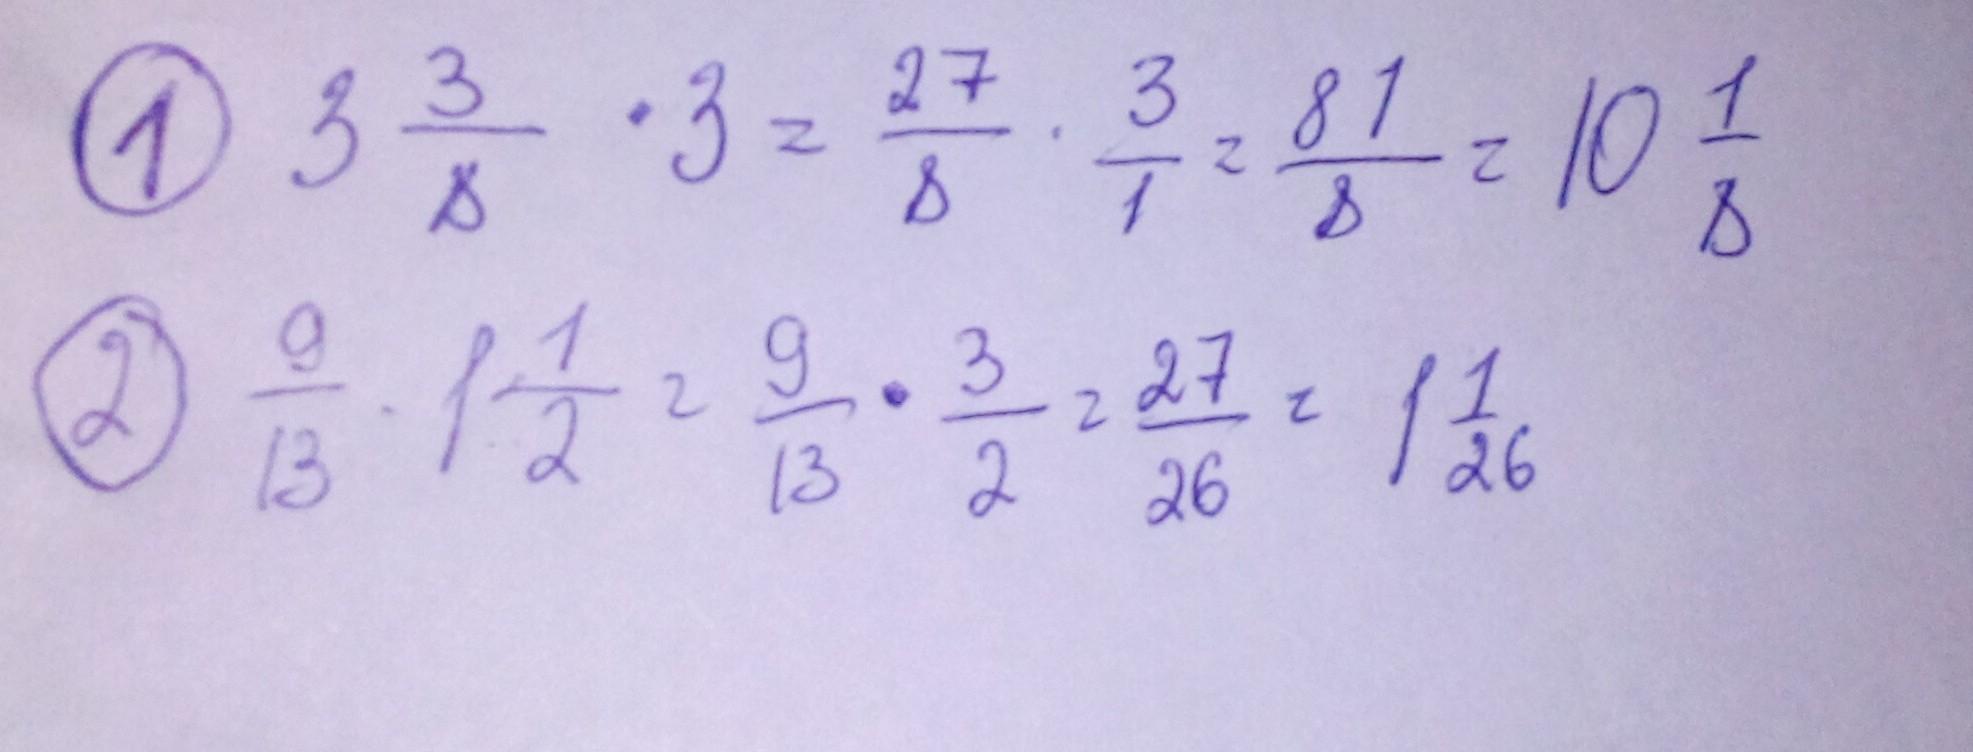 ① 3 3/8 · 3 = 27/8 · 3/1 = 81/8 = 10 1/8
② 9/13 · 1 1/2 = 9/13 · 3/2 = 27/26 = 1 1/26